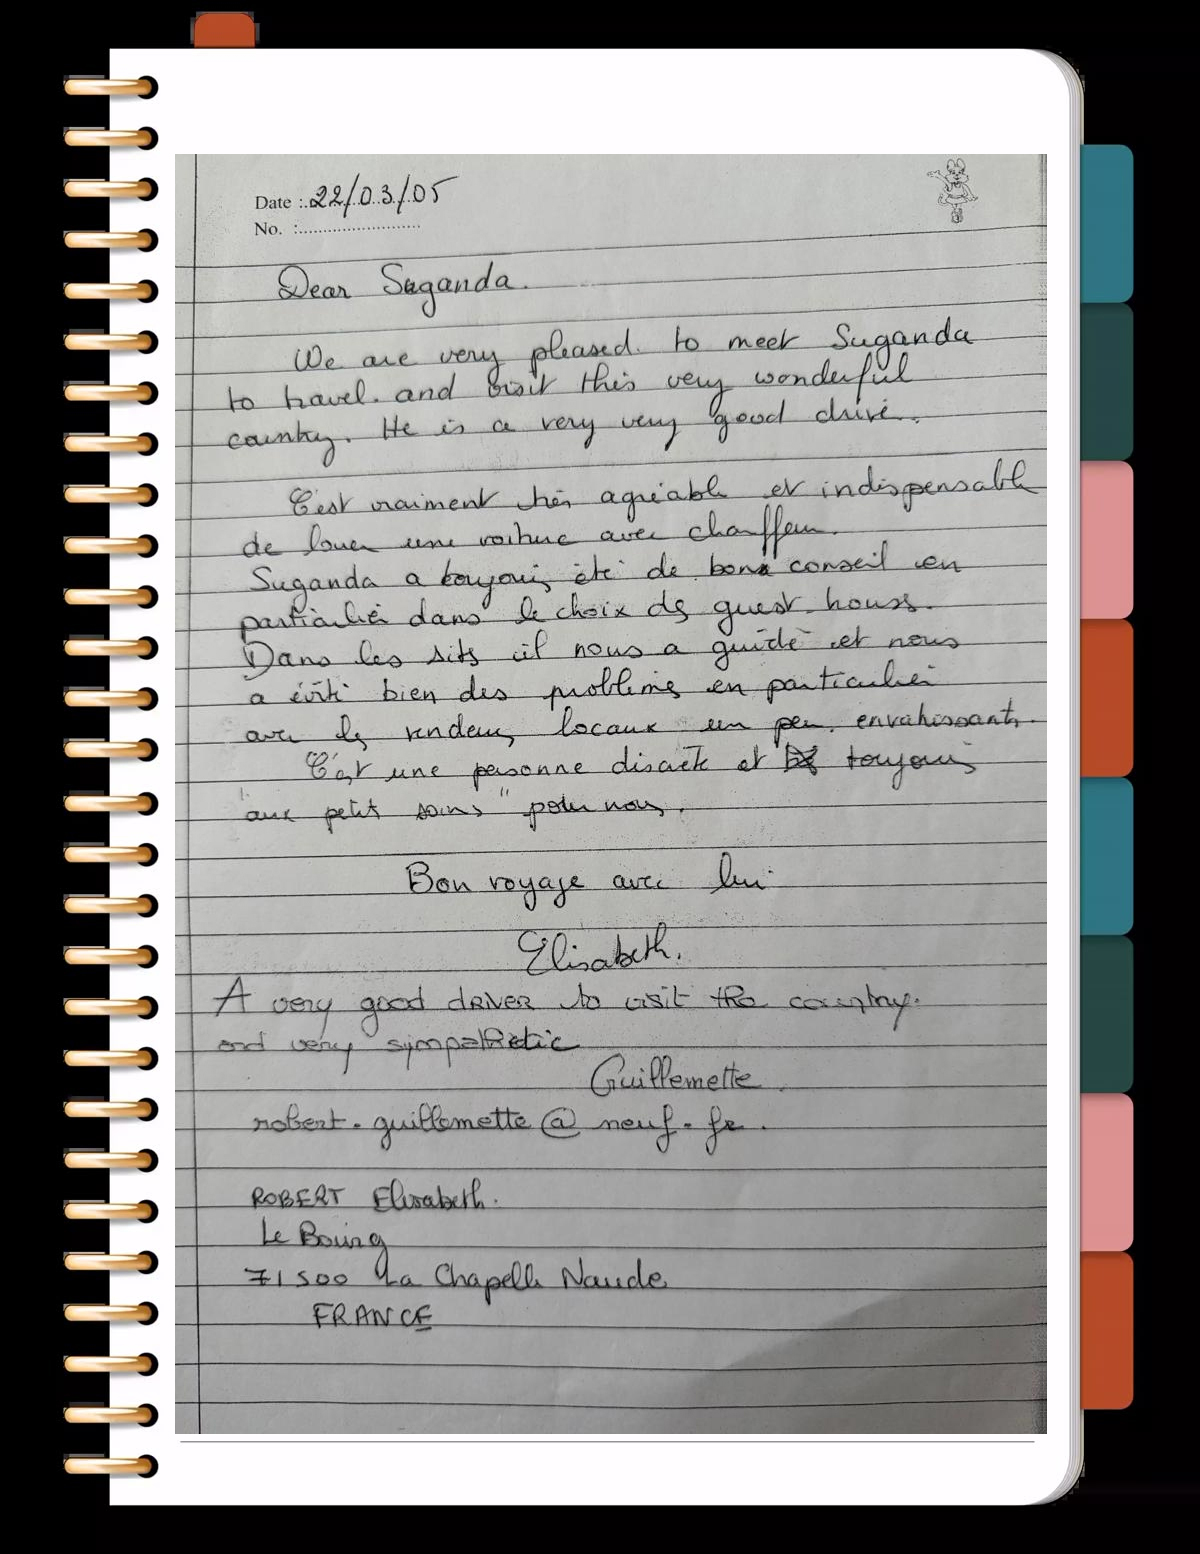 Date :.22/03/05
No. :..........................
Dear Suganda.
We are very pleased. to meet Suganda
to travel. and visit this very wonderful
country. He is a very very good drive.
C'est vraiment très agréable et indispensable
de louer une voiture avec chauffeur.
Suganda a toujours été de bons conseil en
particulier dans le choix des guest-houses.
Dans les sites il nous a guidé et nous
a évité bien des problèmes en particulier
avec les vendeurs locaux un peu envahissants.
C'est une personne discrète et toujours
"aux petits soins" pour nous.
Bon voyage avec lui
Elisabeth.
A very good driver to visit the country.
and very sympathetic
Guillemette
robert.guillemette@neuf.fr.
ROBERT Elisabeth.
Le Bourg
71500 La Chapelle Naude
FRANCE